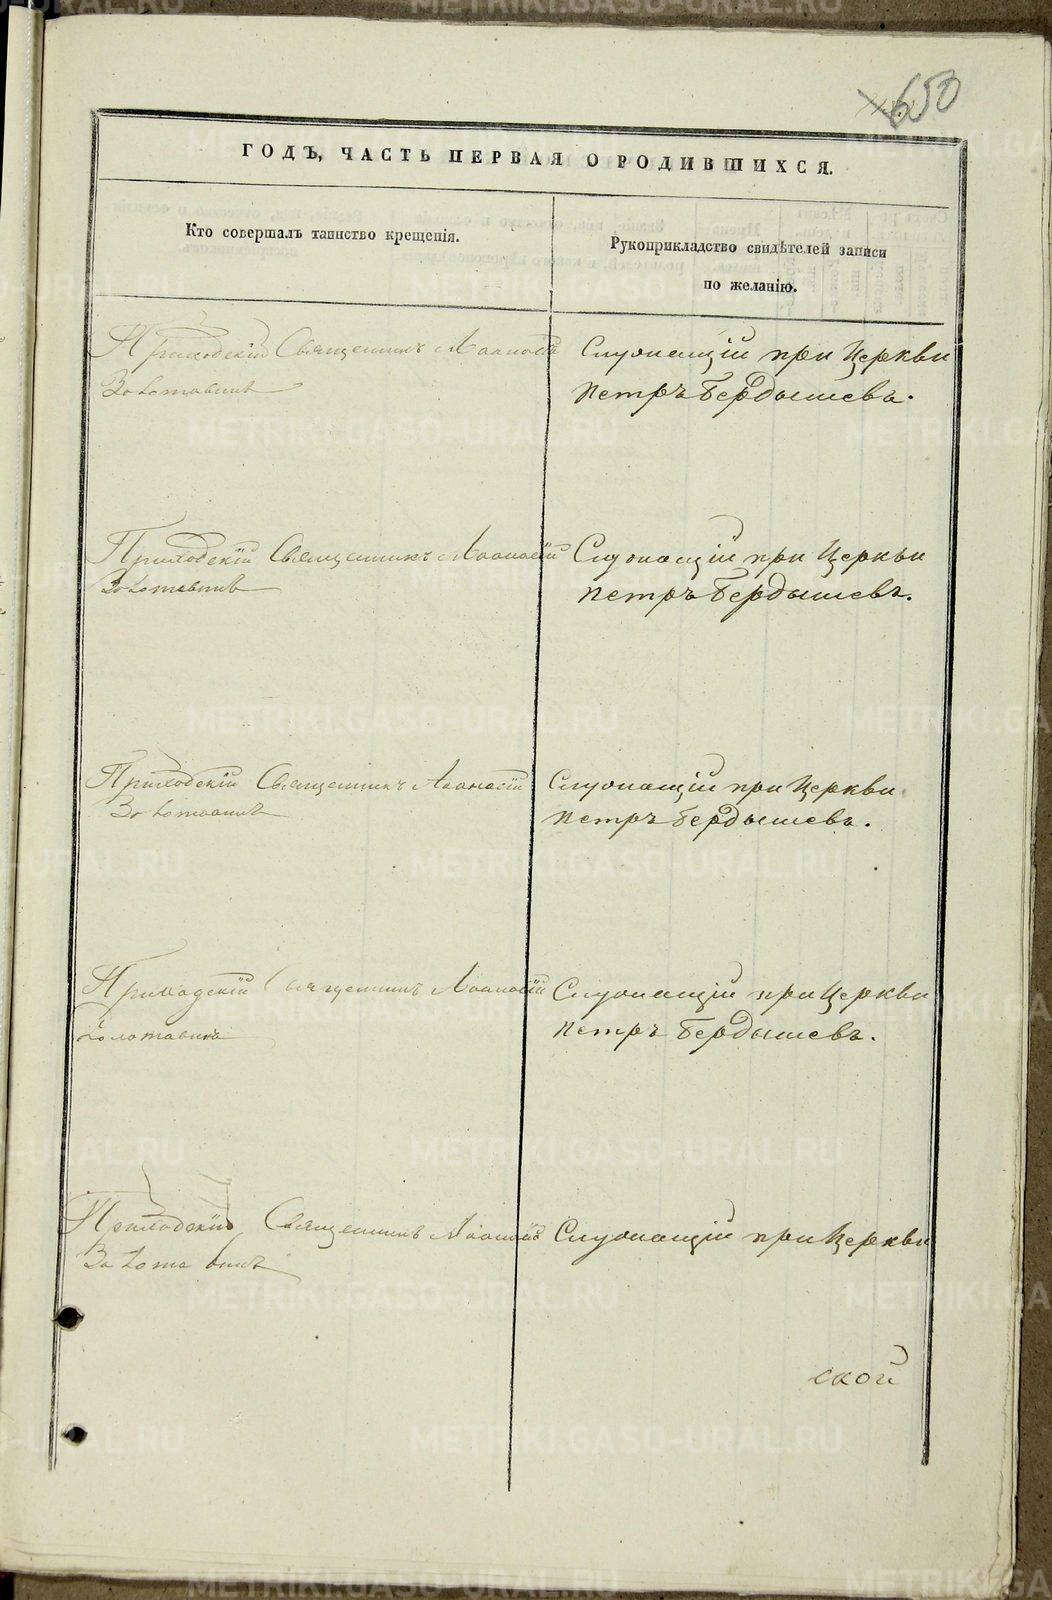 650
ГОДЪ, ЧАСТЬ ПЕРВАЯ О РОДИВШИХСЯ.
Кто совершалъ таинство крещенія.
Рукоприкладство свидѣтелей записи
по желанію.
Приходскій Священникъ
Служащій при Церкви
Петръ Бердышевъ.
Приходскій Священникъ Аѳанасій
Служащій при Церкви
Петръ Бердышевъ.
Приходскій Священникъ Аѳанасій
Служащій при Церкви
Петръ Бердышевъ.
Приходскій Священникъ Аѳанасій
Служащій при Церкви
Петръ Бердышевъ.
Приходскій Священникъ
Служащій при Церкви
ской
METRIKI.GASO-URAL.RU